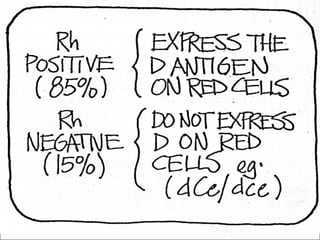 Rh
POSITIVE
(85%)
EXPRESS THE
D ANTIGEN
ON RED CELLS
Rh
NEGATIVE
(15%)
DO NOT EXPRESS
D ON RED
CELLS eg.
(dCe/dce)